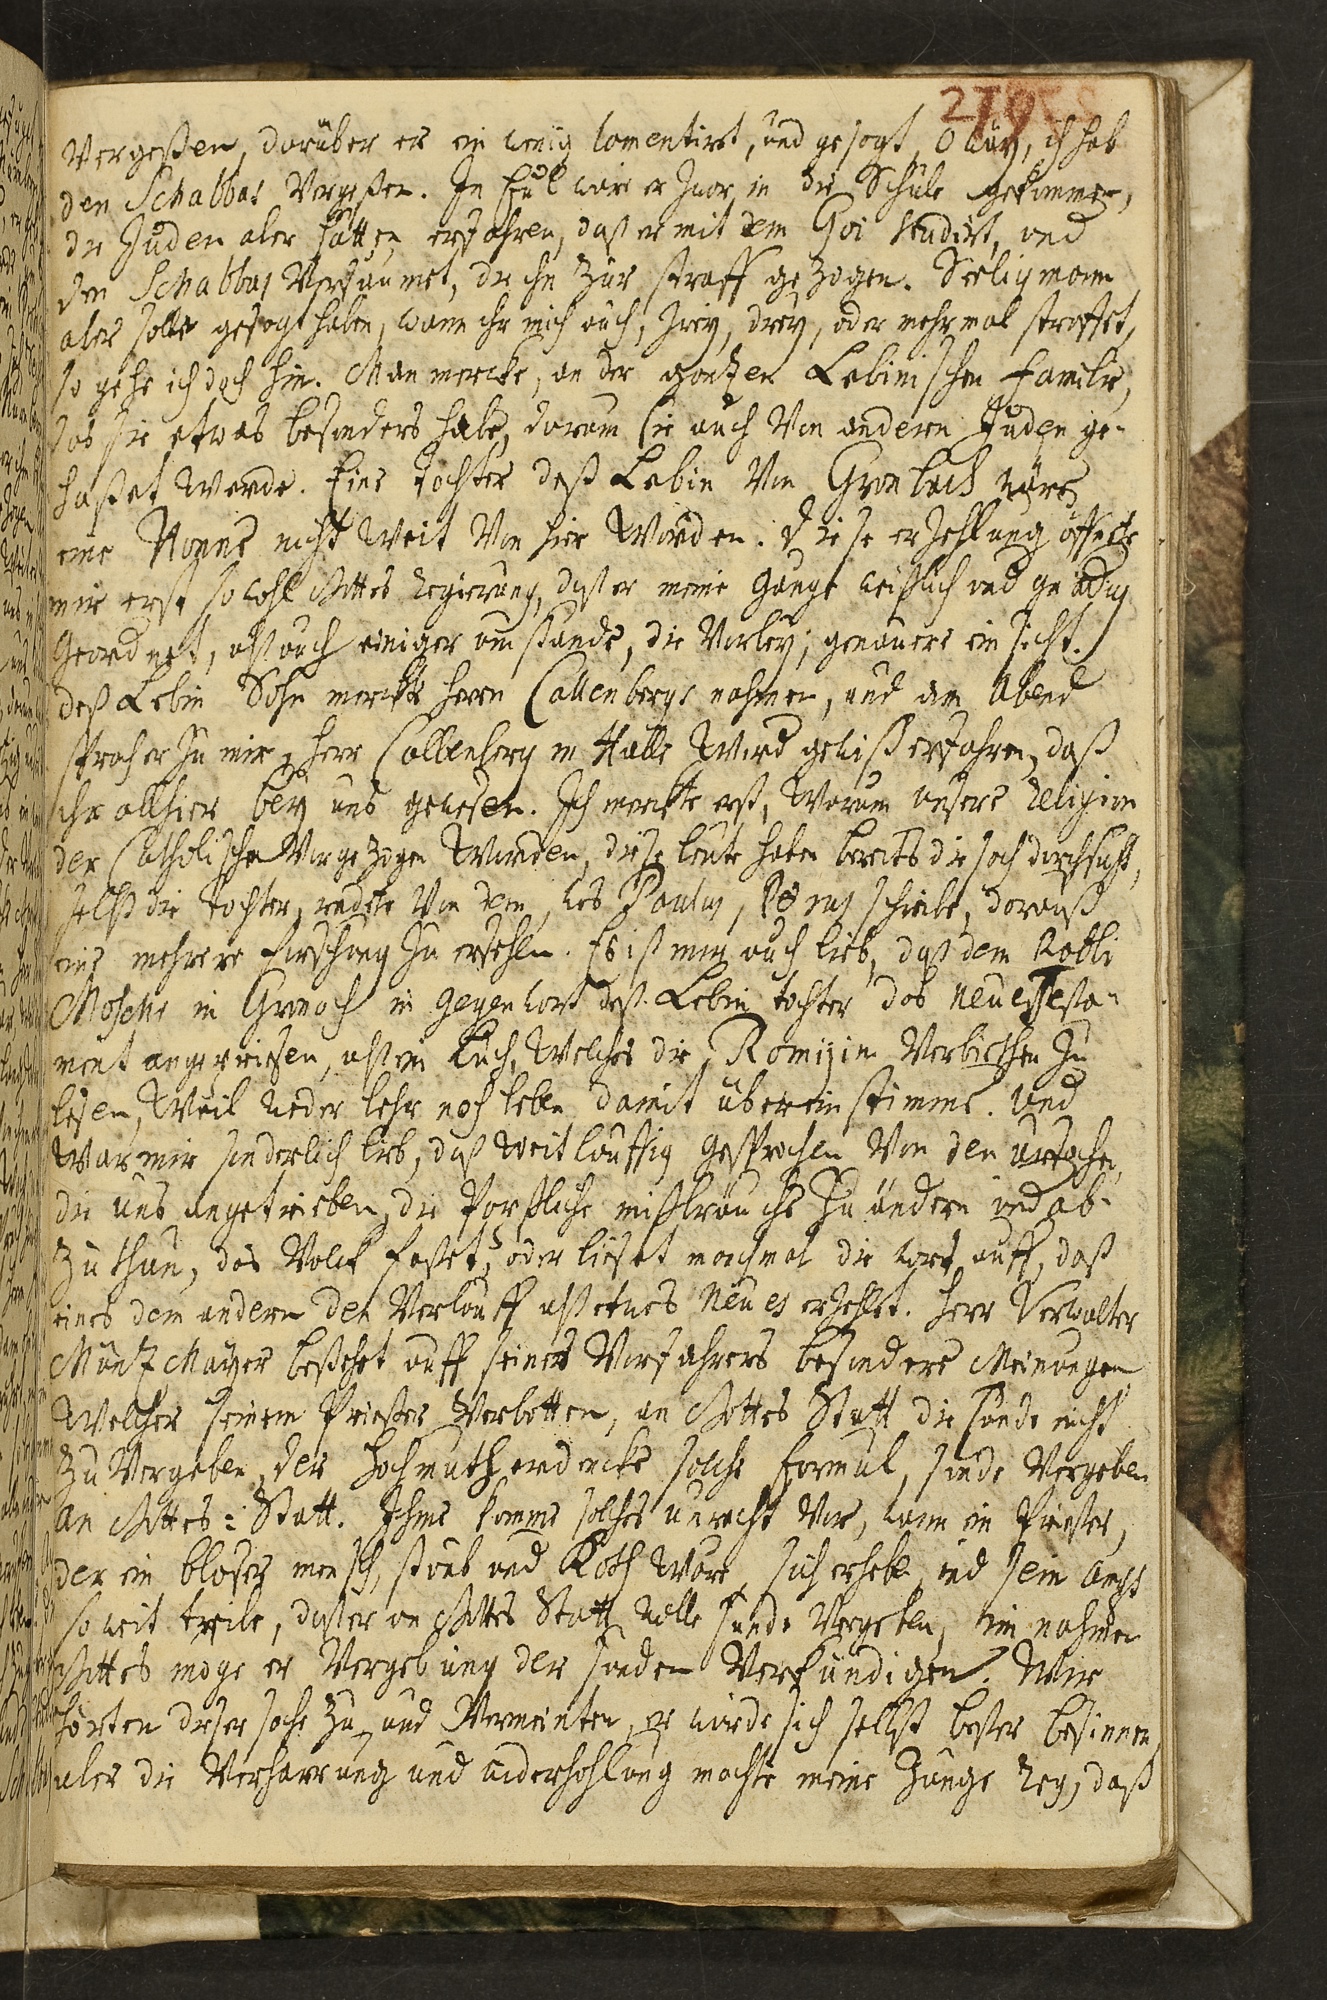 vergeßen, darüber er ein wenig lamentirt, und gesagt, O Way, ich hab
den Schabbas vergeßen. In Eul wäre er zwar in die Schule gekommen,
die Juden aber hätten erfahren, daß er mit dem Goi studirt, und
den Schabbas versäumet, der ihn zur straff gezogen. Seeligmann
aber solle gesagt haben, wann ihr mich auch, zwey, drey, oder mehrmal straffet,
so gehe ich doch hin. Man mercke, an der gantzen Lebinischen Familie,
das sie etwas besonders habe, darum sie auch von andern Juden ge-
haßet werde. Eine tochter deß Lebin von Grombach wäre
eine Nonne nicht weit von hier worden. Diese erzehlung öffnete
mir erst so wohl Gottes regierung, daß er meine gänge weißlich und gnädig
geordnet, alß auch einiger umstände, die vorbey, genauere einsicht.
deß Lebin Sohn merckte Herrn Callenbergs nahmen, und am Abend
sprach er zu mir, Herr Callenberg in Halle wird gewiß erfahren, daß
ihr allhier bey uns gewesen. Ich merckte erst, warum unsere religion
der Catholischen vorgezogen worden, diese leute haben bereits die sach durchsucht,
selbst die tochter, redete von dem, was Paulus, Petrus schreibe, darauß
eine mehrere forschung zu ersehen. Es ist mir auch lieb, daß dem Rabbi
Mosche in Gronach in gegenwart deß Lebin tochter das neue Testa-
ment angepriesen, alß ein Buch, welches die Römischen verbiethen zu
lesen, weil weder lehr noch leben damit übereinstimme. Und
war mir sonderlich lieb, daß weitläuffig gesprochen von den ursachen,
die uns angetrieben, die Pabstliche mißbräuche zu ändern und ab-
zuthun, das Volck faßet, oder lieset manchmal die wort auff, daß
eines dem andern den verlauff alß etwas neues erzehlet. Herr Verwalter
Müntz Mayer bestehet auff seines Vorfahrers besondere Meinungen
welcher seinem Priester verbotten, an Gottes Statt die sünde nicht
zu vergeben, der hochmuth erdencke solche formul, sünde vergeben
an Gottes: Statt. Ihme komme solches unrecht vor, wann ein Priester,
der ein bloser mensch, staub und Koth wäre, sich erhebe, und sein Ampt
so weit treibe, daß er an Gottes Statt wolle sünde vergeben, im nahmen
Gottes möge er vergebung der sünden verkündigen. Wir
hörten dieser sache zu, und vermeinten, er würde sich selbst beßer besinnen,
aber die verharrung und widerhohlung machte meine zunge reg, daß